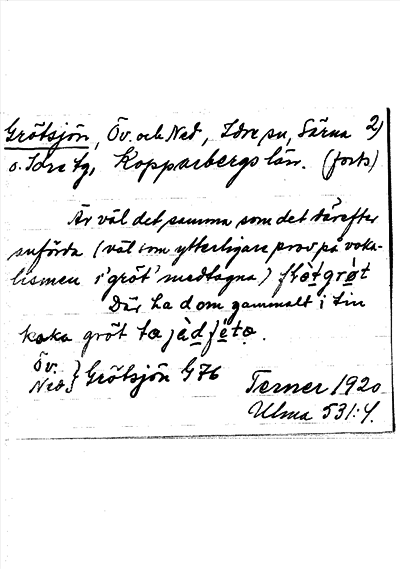 Grötsjön, Öv. och Ned, Idre sn, Särna 2)
o. Idre tg, Kopparbergs län. (forts)
Är väl det samma som det därefter
anförda (väl som ytterligare prov på voka-
lismen i 'gröt' medtagna)
Där ha dom gammalt i tin
koka gröt
Öv. } Grötsjön G76
Ned.
Terner 1920
Ulma 531:4.